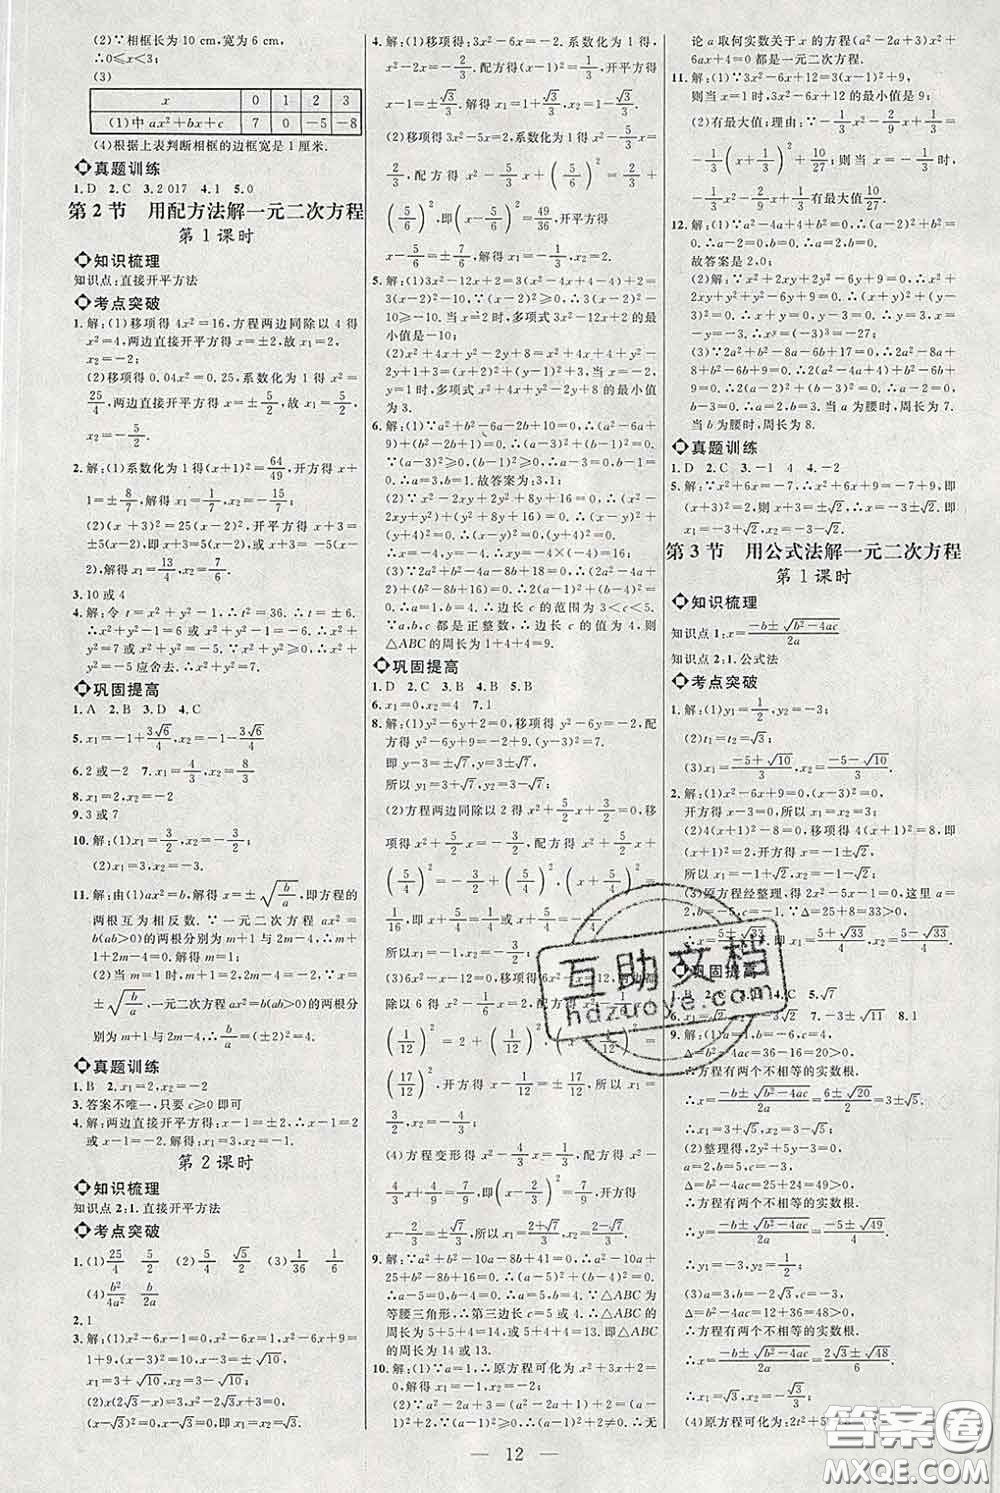 (2)∵相框长为 10 cm,宽为 6 cm,
∴0≤x<3;
(3)
x 0 1 2 3
(1)中 ax²+bx+c 7 0 -5 -8
(4)根据上表判断相框的边框宽是 1 厘米.
真题训练
1.D 2.C 3.2 017 4.1 5.0
第 2 节 用配方法解一元二次方程
第 1 课时
知识梳理
知识点:直接开平方法
考点突破
1.解:(1)移项得 4x²=16,方程两边同除以 4 得
x²=4,两边直接开平方得 x=±2,故 x₁=2,
x₂=-2;
(2)移项得 0.04x²=0.25,系数化为 1 得,x²=
25/4,两边直接开平方得 x=±5/2,故 x₁=5/2,
x₂=-5/2.
2.解:(1)系数化为 1 得(x+1)²=64/49,开方得 x+
1=±8/7,解得 x₁=1/7,x₂=-15/7;
(2)(x+3)²=25(x-2)²,开平方得 x+3=
±5(x-2),即 x₁=13/4,x₂=7/6.
3.10 或 4
4.解:令 t=x²+y²-1,∴t²=36,∴t=±6.
∴x²+y²-1=±6.∴x²+y²=7 或 x²+
y²=-5 应舍去.∴x²+y²=7.
巩固提高
1.A 2.B 3.D 4.C
5.x₁=-1+3√6/4,x₂=-1-3√6/4
6.2 或-2 7.x₁=4/3,x₂=8/3
8.x₁=2,x₂=-2
9.3 或 7
10.解:(1)x₁=3/2,x₂=-3/2;
(2)x₁=3,x₂=5.
11.解:由(1)ax²=b,解得 x=±√(b/a),即方程的
两根互为相反数.∵一元二次方程 ax²=
b(ab>0)的两根分别为 m+1 与 2m-4,∴m+
1+2m-4=0,解得 m=1;
(2)当 m=1 时,m+1=2,2m-4=-2,∵x=
±√(b/a),一元二次方程 ax²=b(ab>0)的两根分
别为 m+1 与 2m-4,∴b/a=(±2)²=4.
真题训练
1.B 2.x₁=2,x₂=-2
3.答案不唯一,只要 c≥0 即可
4.解:两边直接开平方得:x-1=±2,∴x-1=2
或 x-1=-2.解得:x₁=3,x₂=-1.
第 2 课时
知识梳理
知识点 2:1.直接开平方法
考点突破
1.(1)25/4 5/2 (2)5/4 √5/2 (3)1/36 1/6
(4)b²/4a² b/2a
2.1
3.解:(1)x²-6x-1=0,x²-6x=1,x²-6x+9=
1+9,(x-3)²=10,x-3=±√10,∴x₁=
3+√10,x₂=3-√10;
(2)x(2√3-x)=3,x²-2√3x+3=0,
(x-√3)²=0,∴x₁=x₂=√3.
4.解:(1)移项得:3x²-6x=-2,系数化为 1 得,
x²-2x=-2/3,配方得(x-1)²=1/3,开平方得
x-1=±√3/3,解得 x₁=1+√3/3,x₂=1-√3/3;
(2)移项得 3x²-5x=2,系数化为 1 得 x²-5/3x=
2/3,配方得 x²-5/3x+(5/6)²=2/3+
(5/6)²,即(x-5/6)²=49/36,开平方得
x-5/6=±7/6,解得 x₁=2,x₂=-1/3.
5.解:(1)3x²-12x+2=3(x²-4x+4-4)+2=
3(x-2)²-10,∵(x-2)²≥0,∴3(x-2)²
-10≥-10,当 x=2 时,多项式 3x²-12x+2 的最
小值是-10;
(2)x²+4x+y²-2y+8=(x²+4x+4)+(y²-
2y+1)+3=(x+2)²+(y-1)²+3,当 x=-2,y
=1 时,多项式 x²+4x+y²-2y+8 的最小值
为 3.
6.解:(1)∵a²+b²-6a-2b+10=0,∴(a²-6a+
9)+(b²-2b+1)=0.∴(a-3)²+(b-1)²=0.
∵(a-3)²≥0,(b-1)²≥0,∴a-3=0,b-1=
0.∴a=3,b=1.故答案为:3,1;
(2)∵x²-2xy+2y²+8y+16=0,∴(x²-
2xy+y²)+(y²+8y+16)=0.∴(x-y)²+(y+
4)²=0.∴x-y=0,y+4=0.∴y=-4,x=-4.
∴xy=16;
(3)∵2a²+b²-4a-8b+18=0,∴(2a²-4a+
2)+(b²-8b+16)=0.∴2(a-1)²+(b-4)²=0.
∴a-1=0,b-4=0.∴边长 c 的范围为 3<c<5.
∵a,b,c 都是正整数,∴边长 c 的值为 4,则
△ABC 的周长为 1+4+4=9.
巩固提高
1.D 2.C 3.B 4.B 5.B
6.x₁=0,x₂=4 7.1
8.解:(1)y²-6y+2=0,移项得 y²-6y=-2,配
方得 y²-6y+9=-2+9,∴(y-3)²=7.
即 y-3=±√7,解得 y=3±√7,
所以 y₁=3+√7,y₂=3-√7;
(2)方程两边同除以 2 得 x²+5/2x+3/2=0,移
项得 x²+5/2x=-3/2,配方得 x²+5/2x+
(5/4)²=-3/2+(5/4)²,即(x+5/4)²=
1/16,即 x+5/4=1/4 或 x+5/4=-1/4,
所以 x₁=-1,x₂=-3/2;
(3)6x²-x-12=0,移项得 6x²-x=12,
除以 6 得 x²-1/6x=2,配方得 x²-1/6x+
(1/12)²=2+(1/12)²,即(x-1/12)²=
(17/12)²,开方得 x-1/12=±17/12,所以 x₁=3/2,x₂=
-4/3;
(4)方程变形得 x²-4/3x=1/3,配方得 x²-
4/3x+4/9=7/9,即(x-2/3)²=7/9,开方得
x-2/3=±√7/3,所以 x₁=(2+√7)/3,x₂=(2-√7)/3.
9.解:∵a²+b²-10a-8b+41=0,∴a²-10a+
25+b²-8b+16=0.∴(a-5)²+(b-4)²=0.
∴a-5=0,b-4=0.∴a=5,b=4.∵△ABC 为
等腰三角形,∴第三边长 c=5 或 4.∴△ABC 的
周长为 5+5+4=14 或 5+4+4=13.即△ABC
的周长为 14 或 13.
10.解:(1)∵a=1,∴原方程可化为 3x²+6x+4=
0,解得
(2)∵a²-2a+3=(a²-2a+1)+2=(a-
1)²+2,(a-1)²≥0,∴(a-1)²+2≠0,∴无
论 a 取何实数关于 x 的方程(a²-2a+3)x²+
6ax+4=0 都是一元二次方程.
11.解:(1)∵3x²-6x+12=3(x-1)²+9,
则当 x=1 时,3x²-6x+12 的最小值是 9;
(2)有最大值;理由:∵-1/3x²-2/9x+1/3=
-1/3(x+1/3)²+10/27;则当 x=-1/3 时,
-1/3x²-2/9x+1/3 有最大值 10/27.
12.解:(1)∵a²-4a+4+b²=0,∴(a-2)²+b²=
0.∴a-2=0,b=0.∴a=2,b=0.
故答案是:2;0;
(2)∵x²+2xy+2y²-6y+9=0,∴x²+
2xy+y²+y²-6y+9=0.∴(x+y)²+(y-3)²
=0.∴x=-3,y=3.∴
(3)∵2a²+b²-8a-6b+17=0,∴2a²-8a+
8+b²-6b+9=0.∴2(a-2)²+(b-3)²=0.
∴a-2=0,b-3=0.∴a=2,b=3.当 a 为腰时,周长为 7;
当 b 为腰时,周长为 8.
真题训练
1.D 2.C 3.-1 4 4.-2
5.解:∵x²+6x=-7,∴x²+6x+9=-7+9,即
(x+3)²=2,则 x+3=±√2,
∴x₁=-3+√2,x₂=-3-√2.
第 3 节 用公式法解一元二次方程
第 1 课时
知识梳理
知识点 1:x=(-b±√(b²-4ac))/2a
知识点 2:1.公式法
考点突破
1.解:(1)y₁=1/2,y₂=-3;
(2)t₁=t₂=√3;
(3)x₁=(-5+√10)/3,x₂=(-5-√10)/3.
2.解:(1)x²-6x+9=0,即(x-3)²=0,
开方得 x-3=0,所以 x₁=x₂=3;
(2)4(x+1)²-8=0,移项得 4(x+1)²=8,即
(x+1)²=2,开方得 x+1=±√2,
所以 x₁=-1+√2,x₂=-1-√2;
(3)原方程经整理,得 2x²-5x-1=0,这里 a
=2,b=-5,c=-1.∵Δ=25+8=33>0,
∴x=(5±√33)/4,即 x₁=(5+√33)/4,x₂=(5-√33)/4.
巩固提高
4.C 5.√7
7.-3±√11 8.1
9.解:(1)a=1,
Δ=b²-4ac=36-16=20>0,
∴方程有两个不相等的实数根.
∴x=(-b±√(b²-4ac))/2a=(6±√20)/2=3±√5.
∴x₁=3+√5,x₂=3-√5;
(2)整理得,2y²+5y-3=0,
Δ=b²-4ac=25+24=49>0,
∴方程有两个不相等的实数根.
∴y=(-b±√(b²-4ac))/2a=(-5±√49)/4.
∴y₁=1/2,y₂=-3;
(3)a=3,b=-2,c=-3,
Δ=b²-4ac=12+36=48>0,
∴方程有两个不相等的实数根.
∴x=(-b±√(b²-4ac))/2a=(2√3±√48)/6.
∴x₁=√3,x₂=-√3/3;
(4)原方程可化为:2t²+5
12
互助文档
hdzuoye.com
答案圈
MXQE.COM